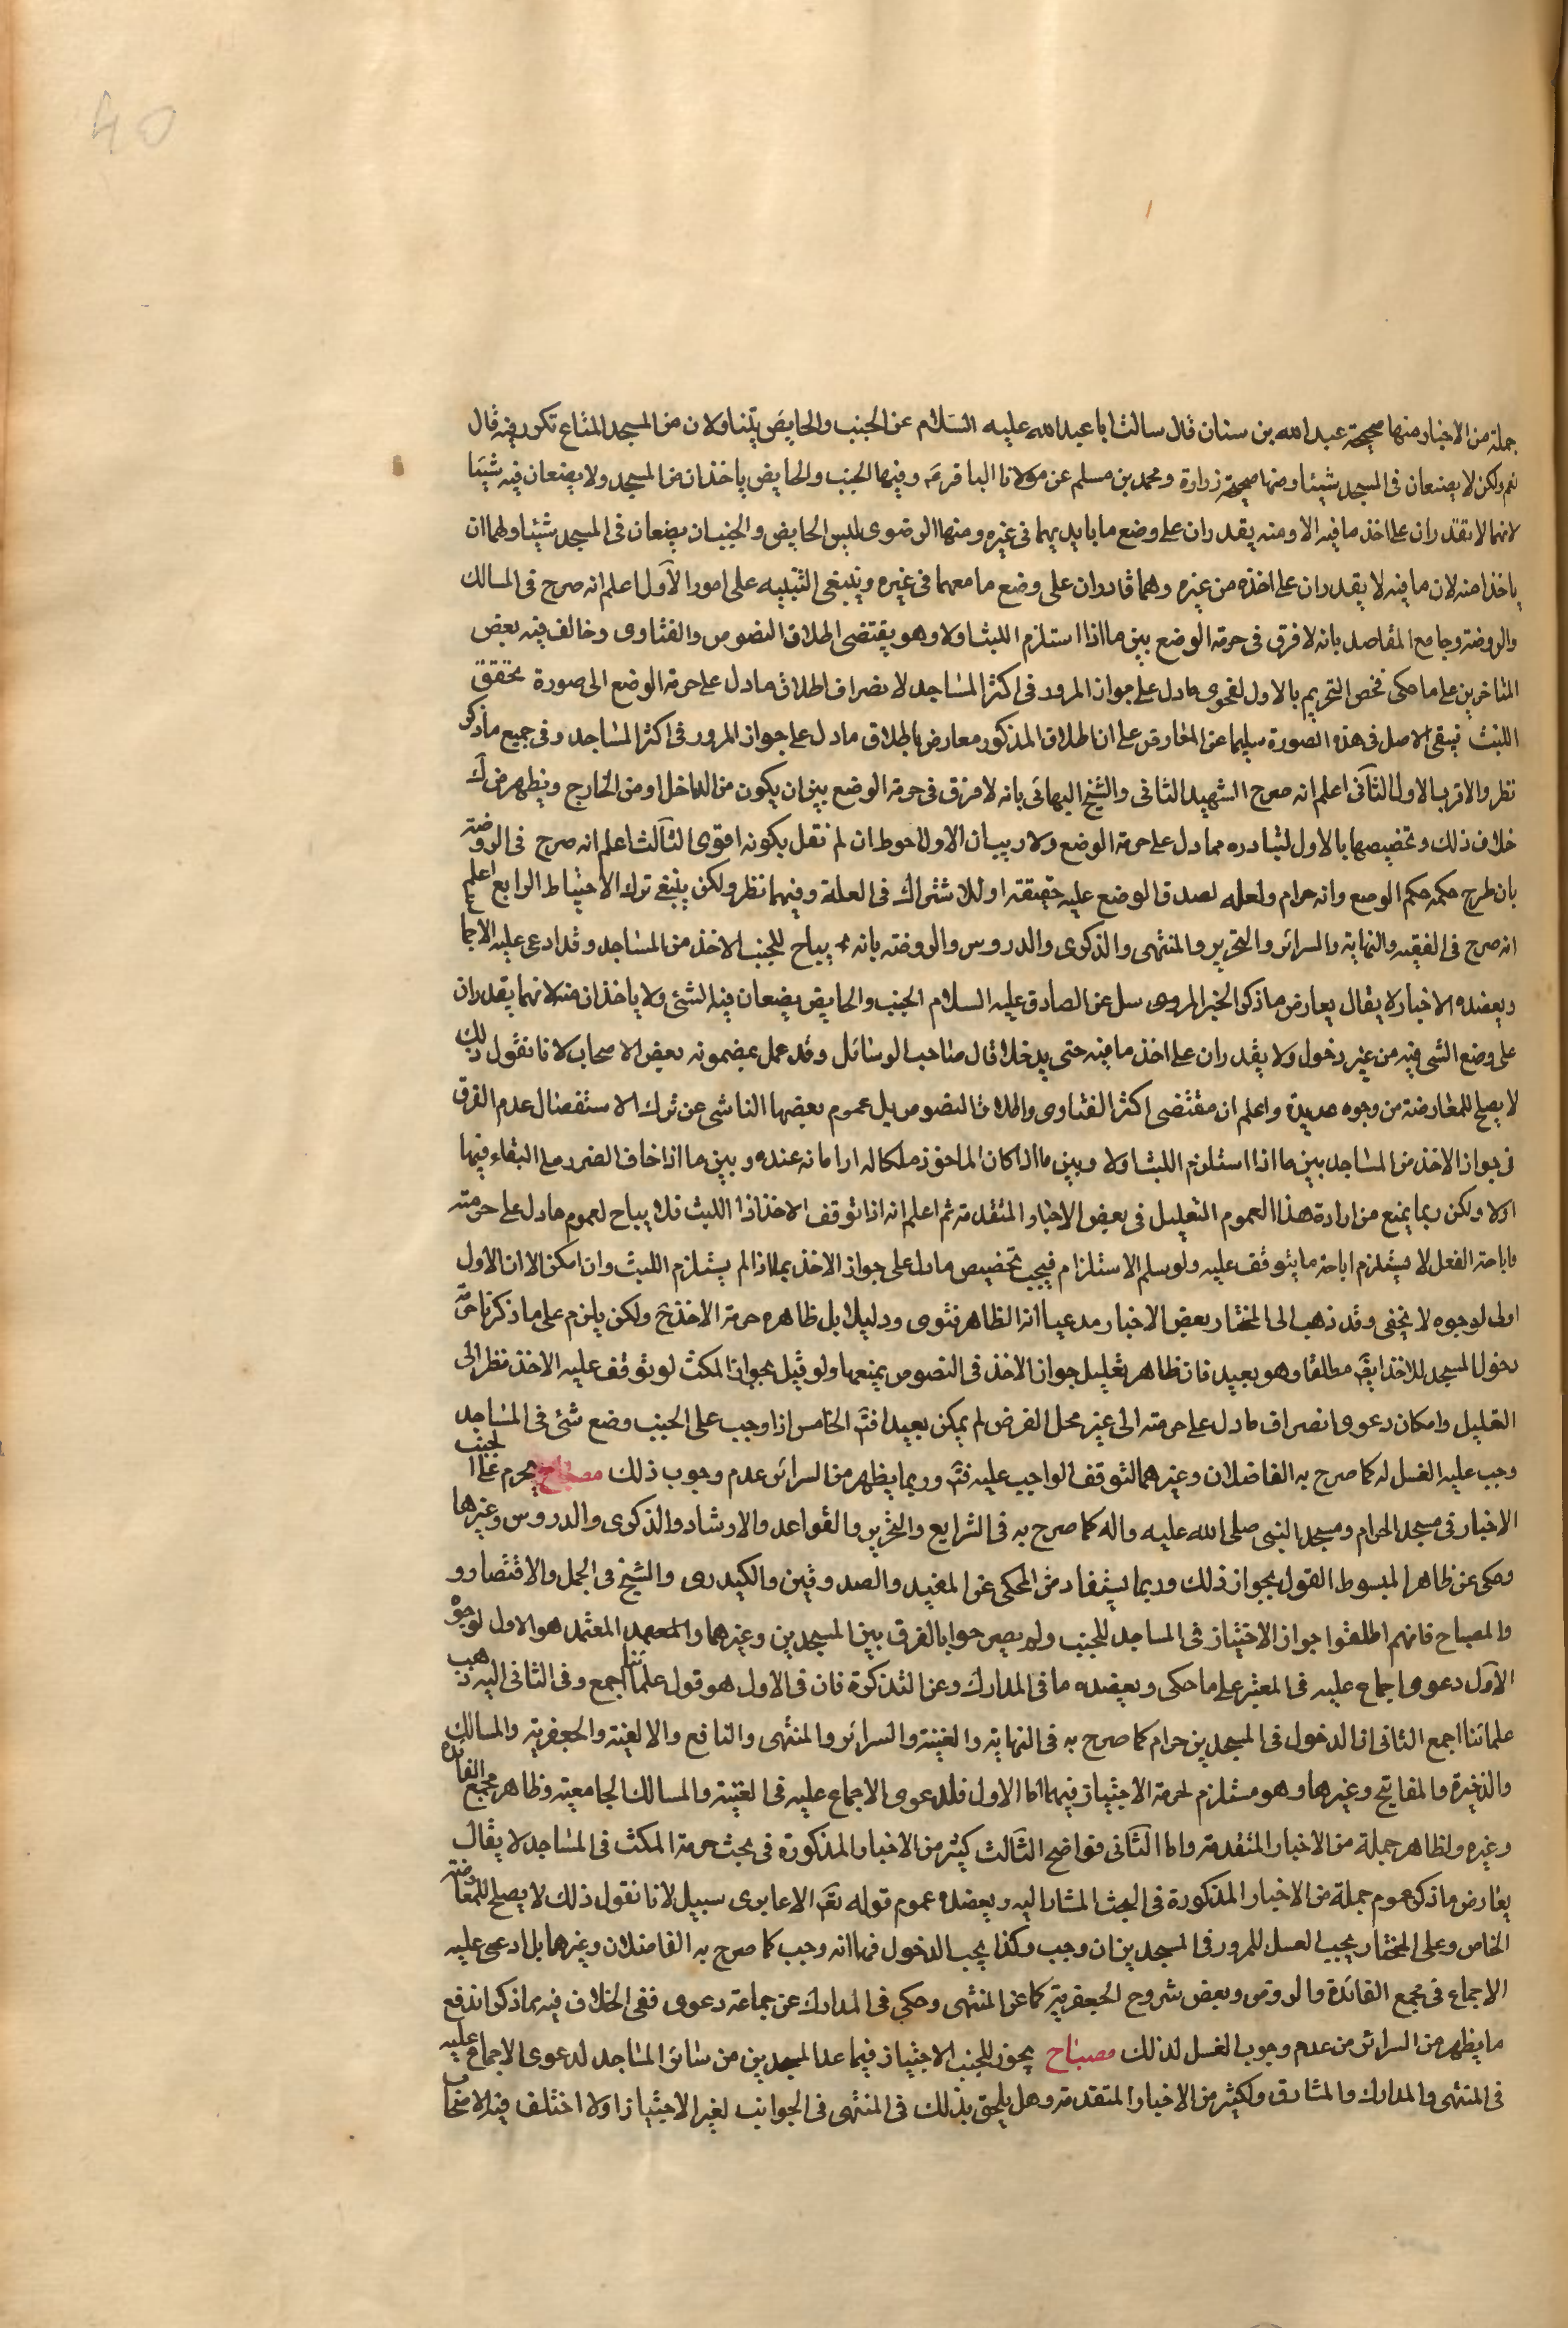 40
جملة من الاخبار منها صحيحة عبد الله بن سنان قال سالت ابا عبد الله عليه السلام عن الجنب والحايض يتناولان من المسجد المتاع تكون فيه قال
نعم ولكن لا يضعان فى المسجد شيئا ومنها صحيحة زرارة ومحمد بن مسلم عن مولانا الباقر وفيها الجنب والحايض ياخذان من المسجد ولا يضعان فيه شيئا
لانهما لا يقدران على اخذ ما فيه الا ومنه يقدران على وضع ما بايديهما فى غيره ومنها الرضوى للبس الحايض والجنبان يضعان فى المسجد شيئا ولهما ان
ياخذا منه لان ما فيه لا يقدران على اخذه من غيره وهما قادران على وضع ما معهما فى غيره وينبغى التنبيه على امور الاول اعلم انه صرح فى المسالك
والروضة وجامع المقاصد بانه لا فرق فى حرمة الوضع بين ما اذا استلزم اللبث اولا وهو يقتضى اطلاق النصوص والفتاوى وخالف فيه بعض
المتاخرين على ما حكى فخص التحريم بالاول لفحوى ما دل على جواز المرور فى اكثر المساجد لانصراف اطلاق ما دل على حرمة الوضع الى صورة تحقق
اللبث فيبقى الاصل فى هذه الصورة سليما عن المعارض على ان اطلاق المذكور معارض باطلاق ما دل على جواز المرور فى اكثر المساجد وفى جميع ما ذكر
نظر والاقرب الاول الثانى اعلم انه صرح الشهيد الثانى والشيخ البهائى بانه لا فرق فى حرمة الوضع بين ان يكون من الداخل او من الخارج ويظهر من
خلاف ذلك وتخصيصها بالاول لتبادره مما دل على حرمة الوضع ولا ريب ان الاول احوط ان لم نقل بكونه اقوى الثالث اعلم انه صرح فى الروضة
بان طرح حكمه حكم الوضع وانه حرام ولعله لصدق الوضع عليه حقيقة او للاشتراك فى العلة وفيهما نظر ولكن ينبغى ترك الاحتياط الرابع اعلم
انه صرح فى الفقيه والنهاية والسرائر والتحرير والمنتهى والذكرى والدروس والروضة بانه يباح للجنب الاخذ من المساجد وقد ادعى عليه الاجما
ويعضده الاخبار لا يقال يعارض ما ذكر الخبر المروى سل عن الصادق عليه السلام الجنب والحايض يضعان فيه الشئ ولا ياخذان منه لانهما يقدران
على وضع الشى فيه من غير دخول ولا يقدران على اخذ ما فيه حتى يدخلا قال صاحب الوسائل وقد عمل بمضمونه بعض الاصحاب لانا نقول ذلك
لا يصلح للمعارضة من وجوه عديدة واعلم ان مقتضى اكثر الفتاوى واطلاق النصوص بل عموم بعضها الناشى عن ترك الاستفصال عدم الفرق
فى جواز الاخذ من المساجد بين ما اذا استلزم اللبث اولا وبين ما اذا كان الماخوذ ملكا له او امانة عنده وبين ما اذا خاف الضرر على البقاء فيها
اولا ولكن ربما يمنع من ارادة هذا العموم التعليل فى بعض الاخبار المتقدمة ثم اعلم انه اذا توقف الاخذ اذا اللبث فلا يباح لعموم ما دل على حرمته
واباحة الفعل لا يستلزم اباحة ما يتوقف عليه ولو سلم الاستلزام فيجب تخصيص ما دل على جواز الاخذ بما اذا لم يستلزم اللبث وان امكن الا ان الاول
اولى لوجوه لا تخفى وقد ذهب الى المختار بعض الاخبار مدعيا انه الظاهر فتوى ودليلا بل ظاهره حرمة الاخذ ح ولكن يلزم على ما ذكرنا حرمة
دخول المسجد للاخذ ايضا مطلقا وهو بعيد فان ظاهر تعليل جواز الاخذ فى النصوص يمنعها ولو قيل بجواز المكث لو توقف عليه الاخذ نظرا الى
التعليل وامكان دعوى انصراف ما دل على حرمته الى غير محل الفرض لم يمكن بعيدا فتم الخامس اذا وجب على الجنب وضع شئ فى المساجد
وجب عليه الغسل له كما صرح به الفاضلان وغيرهما لتوقف الواجب عليه فتم وربما يظهر من السرائر عدم وجوب ذلك مصباح يحرم على الجنب
الاخبار فى مسجد الحرام ومسجد النبى صلى الله عليه واله كما صرح به فى الشرايع والتحرير والقواعد والارشاد والذكرى والدروس وغيرها
وحكى عن ظاهر المبسوط القول بجواز ذلك وربما يستفاد من المحكى عن المفيد والصدوقين والكيدرى والشيخ فى الجمل والاقتصاد و
والمصباح فانهم اطلقوا جواز الاجتياز فى المساجد للجنب ولم يصرحوا بالفرق بين المسجدين وغيرهما والمعتمد المعتمد هو الاول لوجوه
الاول دعوى اجماع عليه فى المعتبر على ما حكى ويعضده ما فى المدارك وعن التذكرة فان فى الاول هو قول علمائنا اجمع وفى الثانى اليه ذهب
علمائنا اجمع الثانى ان الدخول فى المسجدين حرام كما صرح به فى النهاية والغنية والسرائر والمنتهى والنافع والالفية والجعفرية والمسالك
والذخيرة والمفاتيح وغيرها وهو مستلزم لحرمة الاجتياز فيهما اما الاول فلدعوى الاجماع عليه فى الغنية والمسالك الجامعية وظاهر مجمع الفائدة
وغيره ولظاهر جملة من الاخبار المتقدمة واما الثانى فواضح الثالث كثير من الاخبار المذكورة فى بحث حرمة المكث فى المساجد لا يقال
يعارض ما ذكر عموم جملة من الاخبار المذكورة فى البحث المشار اليه ويعضده عموم قوله تعم الا عابرى سبيل لانا نقول ذلك لا يصلح للمعارضة
الخاص وعلى المختار يجب الغسل للمرور فى المسجدين ان وجب وكذا يجب الدخول فيهما انه وجب كما صرح به الفاضلان وغيرهما بل ادعى عليه
الاجماع فى مجمع الفائدة والروض وبعض شروح الجعفرية كما عن المنتهى وحكى فى المدارك عن جماعة دعوى نفى الخلاف فيه بما ذكر اندفع
ما يظهر من السرائر من عدم وجوب الغسل لذلك مصباح يجوز للجنب الاجتياز فيما عدا المسجدين من سائر المساجد لدعوى الاجماع عليه
فى المنتهى والمدارك والمشارق ولكثير من الاخبار المتقدمة وهل يلحق بذلك فى المنتهى فى الجوانب لغير الاجتياز اولا اختلف فيه الاصحاب